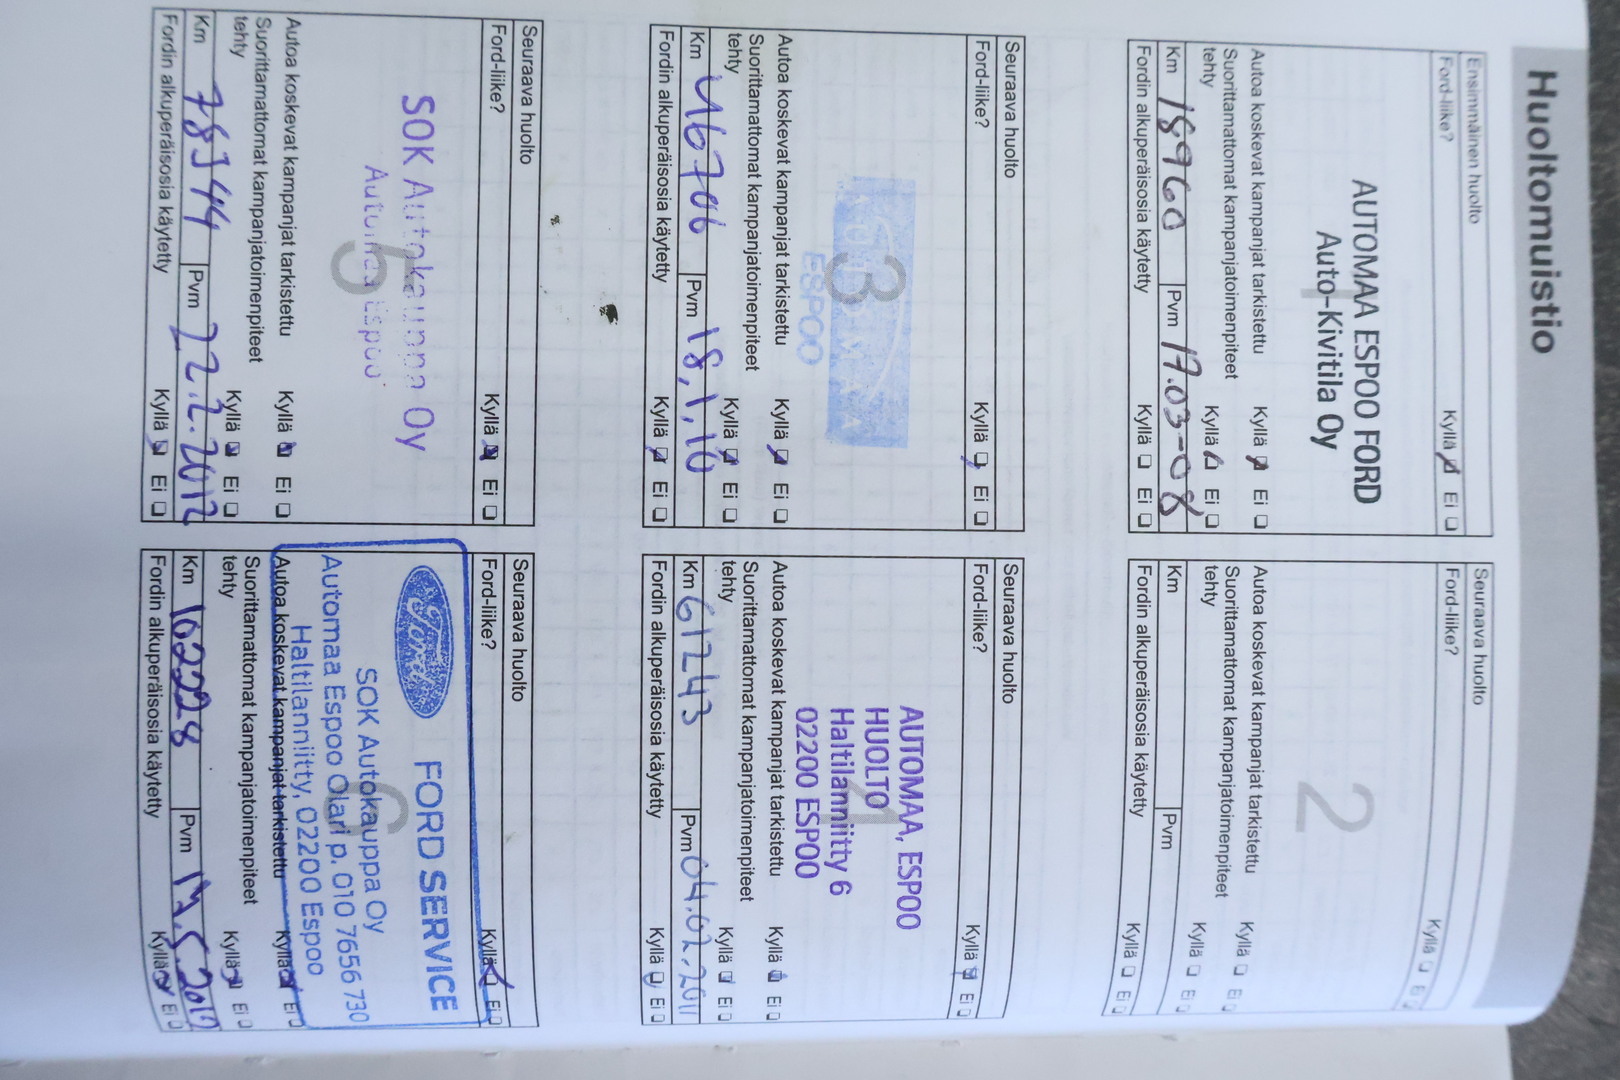 Huoltomuistio
Ensimmäinen huolto
Ford-liike? Kyllä Ei
1
AUTOMAA ESPOO FORD
Auto-Kivitila Oy
Autoa koskevat kampanjat tarkistettu Kyllä Ei
Suorittamattomat kampanjatoimenpiteet
tehty Kyllä Ei
Km 18960 Pvm 17.03-08
Fordin alkuperäisosia käytetty Kyllä Ei
Seuraava huolto
Ford-liike? Kyllä Ei
2
Autoa koskevat kampanjat tarkistettu Kyllä Ei
Suorittamattomat kampanjatoimenpiteet
tehty Kyllä Ei
Km Pvm
Fordin alkuperäisosia käytetty Kyllä Ei
Seuraava huolto
Ford-liike? Kyllä Ei
3
ESPOO
Autoa koskevat kampanjat tarkistettu Kyllä Ei
Suorittamattomat kampanjatoimenpiteet
tehty Kyllä Ei
Km 46706 Pvm 18.1.10
Fordin alkuperäisosia käytetty Kyllä Ei
Seuraava huolto
Ford-liike? Kyllä Ei
4
AUTOMAA, ESPOO
HUOLTO
Haltilanniitty 6
02200 ESPOO
Autoa koskevat kampanjat tarkistettu Kyllä Ei
Suorittamattomat kampanjatoimenpiteet
tehty Kyllä Ei
Km 61243 Pvm 04.02.2011
Fordin alkuperäisosia käytetty Kyllä Ei
Seuraava huolto
Ford-liike? Kyllä Ei
5
SOK Autokauppa Oy
Automaa Espoo
Autoa koskevat kampanjat tarkistettu Kyllä Ei
Suorittamattomat kampanjatoimenpiteet
tehty Kyllä Ei
Km 78344 Pvm 22.2.2012
Fordin alkuperäisosia käytetty Kyllä Ei
Seuraava huolto
Ford-liike? Kyllä Ei
6
Ford FORD SERVICE
SOK Autokauppa Oy
Automaa Espoo Olari p. 010 7656 730
Haltilanniitty, 02200 Espoo
Autoa koskevat kampanjat tarkistettu Kyllä Ei
Suorittamattomat kampanjatoimenpiteet
tehty Kyllä Ei
Km 102228 Pvm
Fordin alkuperäisosia käytetty Kyllä Ei